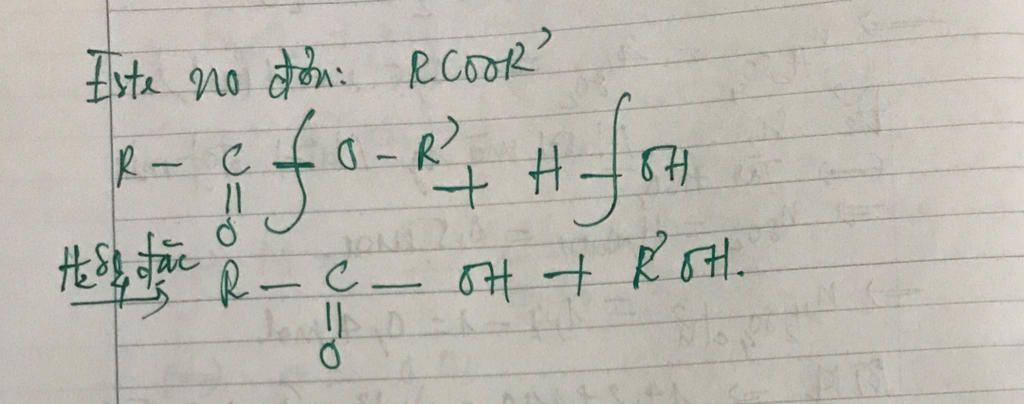 Este no đơn: RCOOR'
R – C ∫ O – R' + H ∫ OH
||
O
H₂SO₄ đặc → R – C – OH + R'OH.
||
O